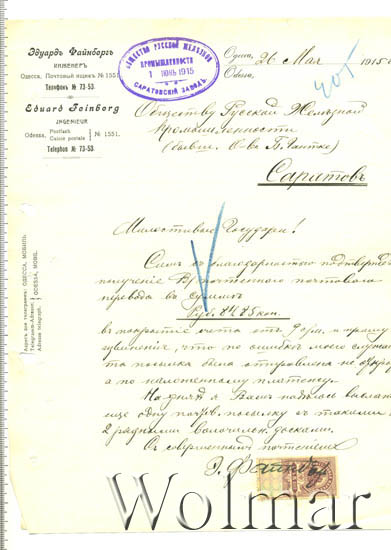 Эдуардъ Файнбергъ
ИНЖЕНЕРЪ
Одесса, Почтовый ящикъ № 1551.
Телефонъ № 73-53.
Eduard Feinberg
INGENIEUR
Odessa, Postfach Caisse postale № 1551.
Telephon № 73-53.
ОБЩЕСТВО РУССКОЙ ЖЕЛѢЗНОЙ
ПРОМЫШЛЕННОСТИ
1 ИЮНЬ 1915
САРАТОВСКІЙ ЗАВОДЪ
Одесса, 26 Мая 1915
Odessa,
405
Обществу Русской Желѣзной
Промышленности
(бывш. О-ва Б. Гантке)
Саратовъ
Милостивые Государи!
Симъ съ благодарностью подтвержд
полученіе В/ почтеннаго почтоваго
перевода въ суммѣ
Руб. 24.25 коп.
въ покрытіе счета отъ 9 и прошу
извиненія, что по ошибкѣ моего служащ
та посылка была отправлена не
а по наложенному платежу.
На дняхъ я Вамъ надѣюсь выслать
еще одну почтов. посылку съ такими
2 рядными волочильн. досками.
Съ совершеннымъ почтеніемъ
Э. Файнбергъ
Адресъ для телеграммъ: ОДЕССА, МОБИЛЬ.
Telegramm-Adresse: Adresse télégraph. ODESSA, MOBIL.
Wolmar